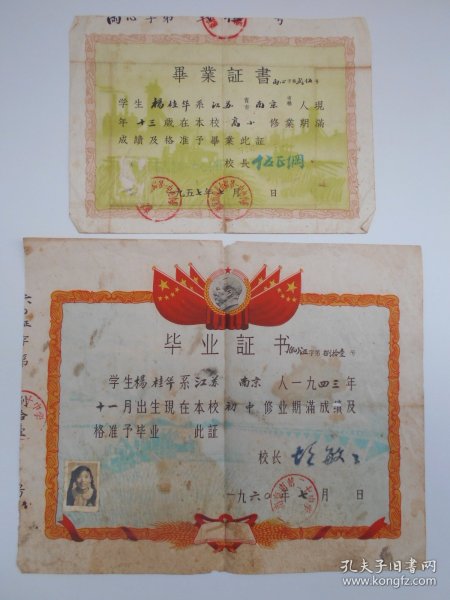 畢業証書
学生楊桂华系江苏省市南京市縣人現
年十三歲在本校高小修業期滿
成績及格准予畢業此証
校長
一九五七年七月 日
毕业証书
字第捌拾壹号
学生楊桂华系江苏南京人一九四三年
十一月出生現在本校初中修业期滿成績及
格准予毕业 此証
校长
一九六〇年七月 日
孔夫子旧书网
www.kongfz.com